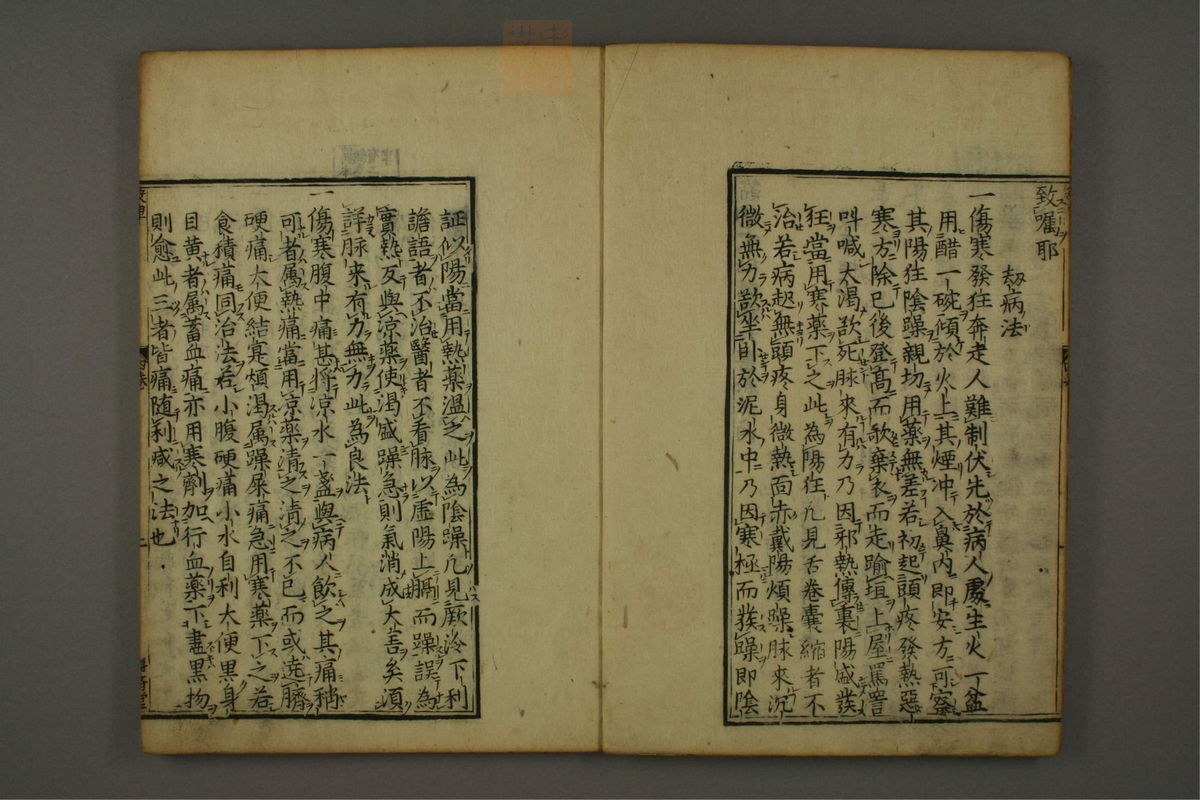 致囑耶
刼病法
一傷寒發狂奔走人難制伏先於病人處生火一盆
用醋一碗傾於火上其煙冲入鼻內即安方可察
其陽狂陰躁親切用藥無差若初起頭疼發熱惡
寒方除已後登髙而歌棄衣而走踰垣上屋罵詈
呌喊大渴欲死脉來有力乃因邪熱傳裏陽盛發
狂當用寒藥下之此為陽狂凢見舌卷囊縮者不
治若病起無頭疼身微熱面赤戴陽煩躁脉來沉
微無力欲坐卧於泥水中乃因寒極而發躁即陰
証似陽當用熱藥溫之此為陰躁凢見厥冷下利
譫語者不治醫者不看脉以虛陽上膈而躁誤為
實熱反與凉藥使渴盛躁急則氣消成大害矣須
詳脉來有力無力此為良法
一傷寒腹中痛甚將凉水一盞與病人飲之其痛稍
可者属熱痛當用凉藥清之清之不已而或遶臍
硬痛大便結實煩渴属躁屎痛急用寒藥下之若
食積痛同治法若小腹硬痛小水自利大便黒身
目黄者属蓄血痛亦用寒劑加行血藥下盡黒物
則愈此三者皆痛随利减之法也